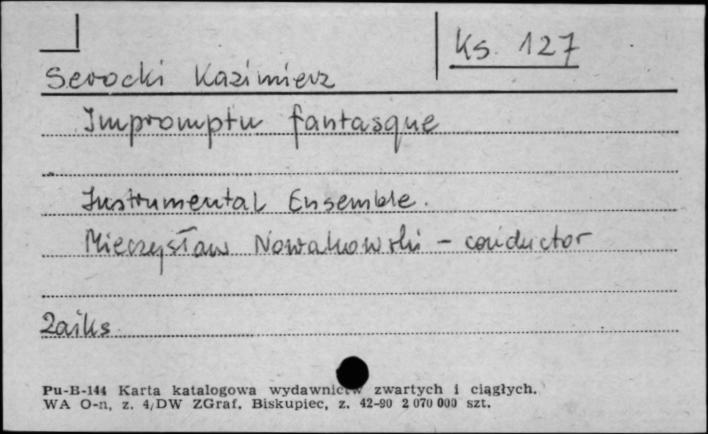 Ks. 127
Serocki Kazimierz
Impromptu fantasque
Instrumental Ensemble.
Mieczysław Nowakowski - conductor
Zaiks
Pu-B-144 Karta katalogowa wydawnictw zwartych i ciągłych.
WA O-n, z. 4/DW ZGraf. Biskupiec, z. 42-90 2 070 000 szt.